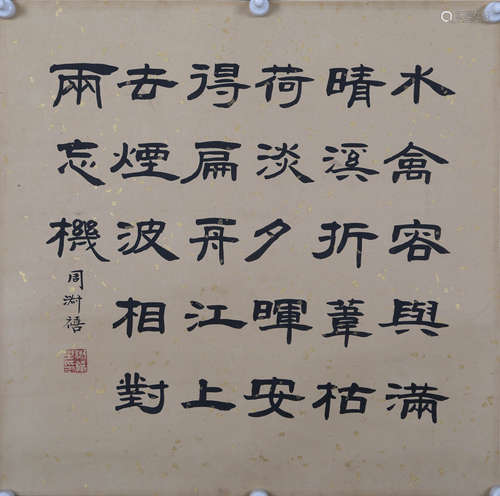 水禽容與滿
晴溪折葦枯
荷淡夕暉安
得扁舟江上
去煙波相對
兩忘機
周澍禧